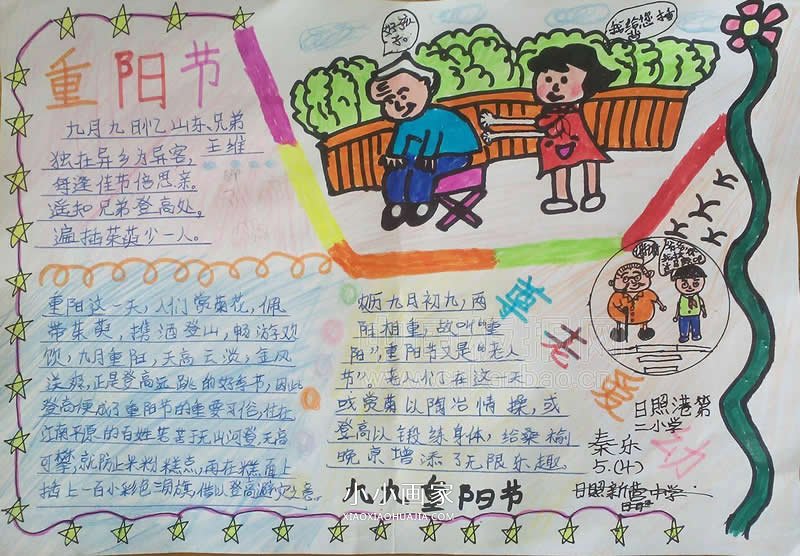 重阳节
九月九日忆山东兄弟
王维
独在异乡为异客，
每逢佳节倍思亲。
遥知兄弟登高处，
遍插茱萸少一人。
重阳这一天，人们赏菊花，佩
带茱萸，携酒登山，畅游欢
饮，九月重阳，天高云淡，金风
送爽，正是登高远眺的好季节，因此
登高便成了重阳节的重要习俗，住在
江南平原的百姓苦于无山河登，无高
可攀，就防上果粉糕点，再在糕面上
插上一百小彩色
借以登高避灾之意。
九月初九，两
阳相重，故叫“重
阳”，重阳节又是“老人
节”，老人们在这一天
或赏菊以陶冶情操，或
登高以锻练身体，给桑榆
晚景增添了无限乐趣。
九九重阳节
我给您捶
日照港第
二小学
秦乐
5.(4)
日照新营中学
小小画家
XIAOXIAOHUAJIA.COM